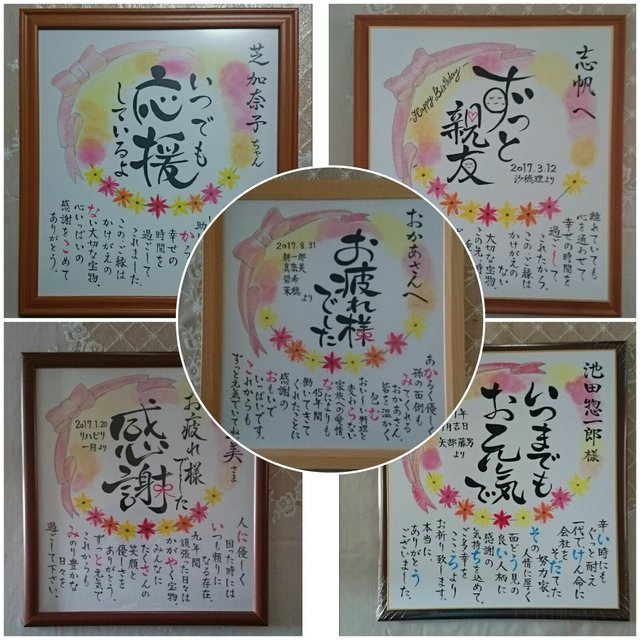 芝加奈子ちゃん
いつでも
応援
しているよ
幸せの
時間を
過ごして
これました。
このご縁は
かけがえの
ない大切な宝物。
心いっぱいの
感謝をこめて
ありがとう。
志帆へ
-Happy Birthday-
ずっと
親友
2017.3.12
沙倫理より
離れていても
心を通わせて
幸せの時間を
過ごして
これたから。
このご縁は
かけがえのない
大切な宝物。
おかあさんへ
2017.8.31
耕一郎
真奈美
碧希
葉穂
より
お疲れ様
でした
あかるく優しく
孫の面倒も
みてくれる
おかあさん。
皆を温かく
包む
おいしい料理
変わらない
家族への愛情。
なによりも
45年間
働いてきて
くれたことに
感謝の
おもいで
いっぱいです。
これからも
ずっと元気でいてね
美さま
お疲れ様
でした
感謝
2017.1.20
リハビリ
一同より
人に優しく
困った時には
いつも頼りに
なる存在。
九年間
頑張った日々は
かがやく宝物
みんなに
たくさんの
笑顔と
優しさを
ありがとう。
ずっと元気で
これからも
みのり豊かな
日々を
過ごして下さい。
池田惣一郎様
いつまでも
お元気で
年
月吉日
矢部藤男
より
辛い時にも
ぐっと耐え
一代でけん命に
会社を
そだてた
努力家。
その
人情に厚く
面どう見の
良い人柄に
感謝の
気持ちを込めて
ご多幸を
こころより
お祈り致します。
本当に
ありがとう
ございました。